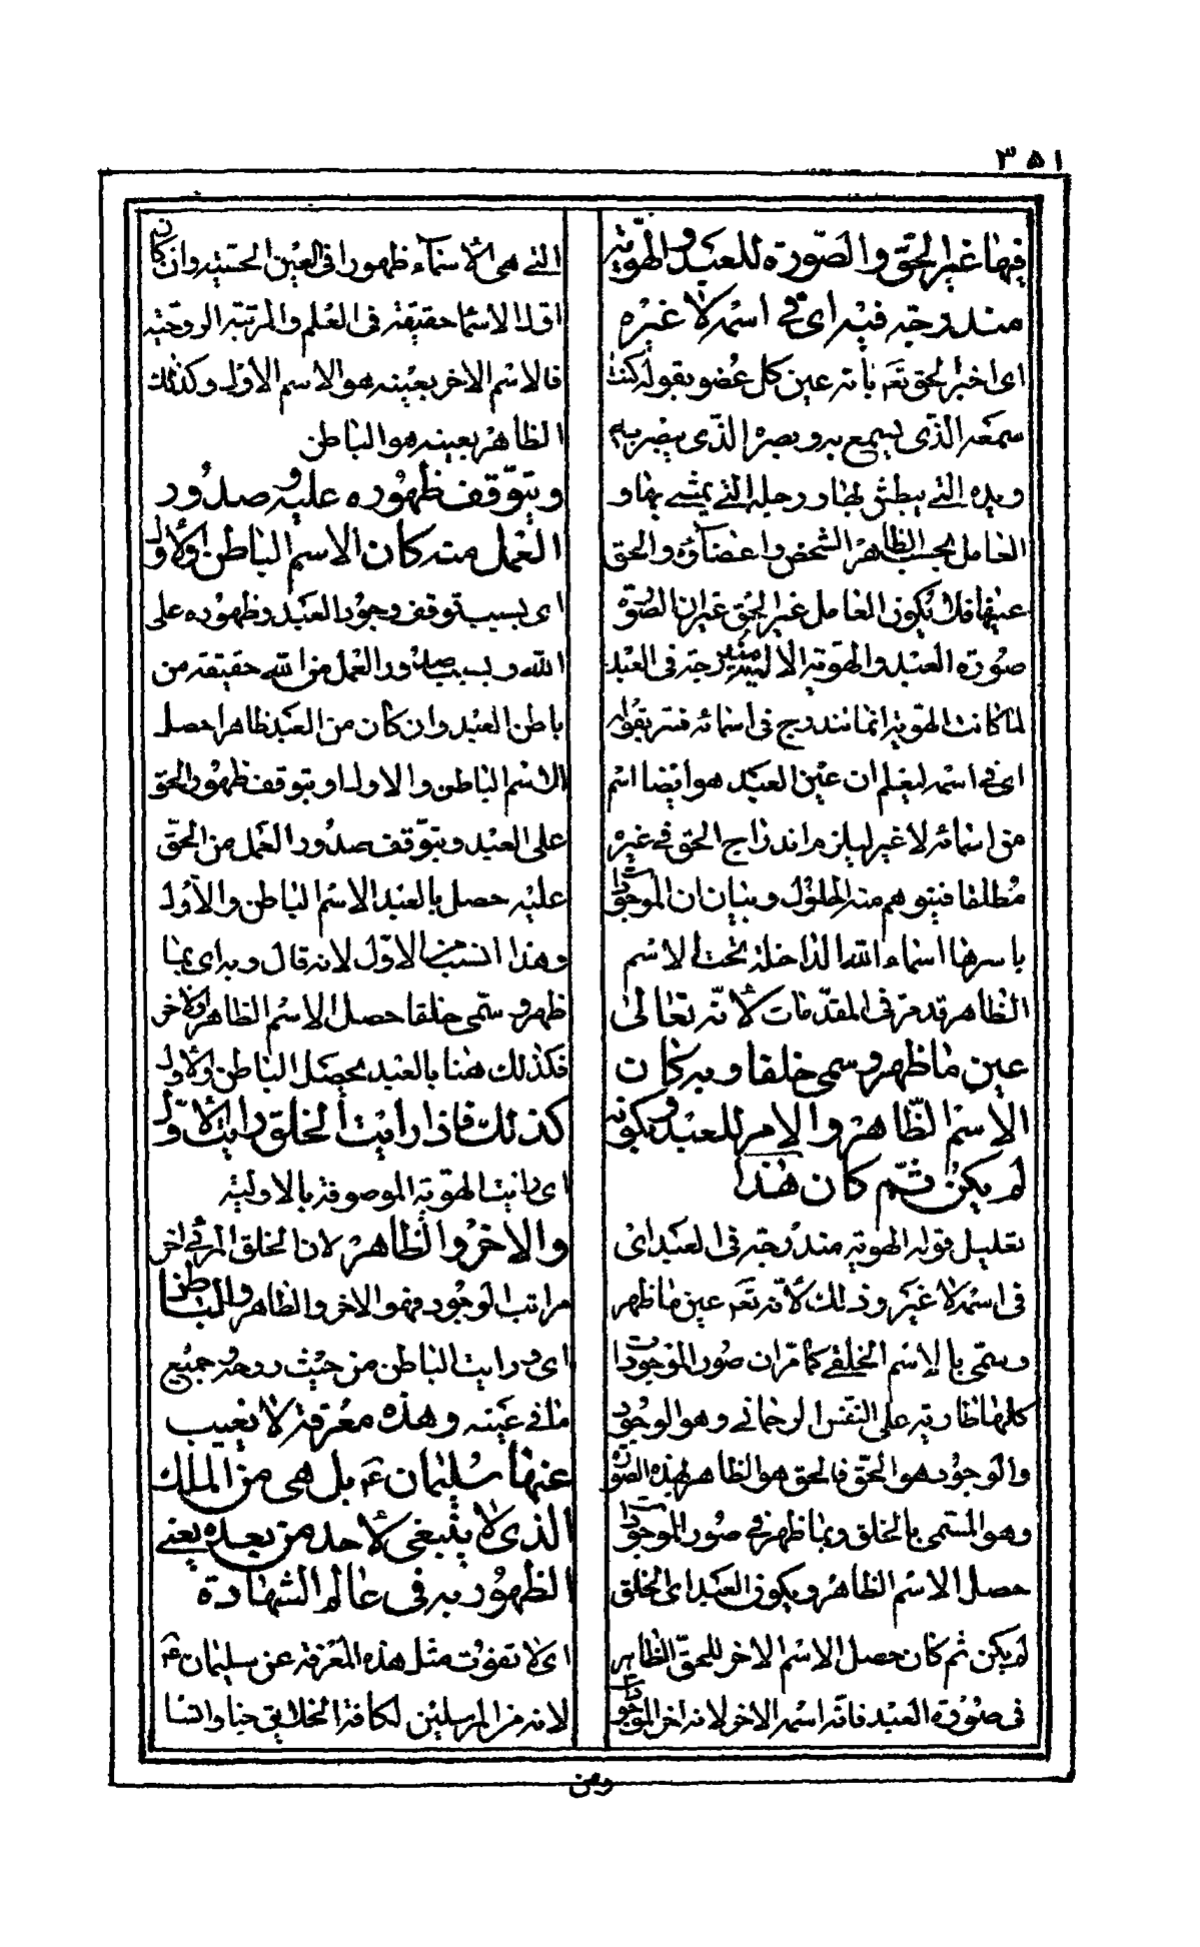 ٣٥١
فيها غير الحق والصورة للعبد والهوية
مندرجة فيه اى فى اسمه لا غيره
اى اخبر الحق تعه بانه عين كل عضو بقوله كنت
سمعه الذى يسمع به وبصره الذى يبصر به
ويده التى يبطش بها ورجله التى يمشى بها و
العامل بحسب الظاهر الشخص واعضاؤه والحق
عينها فلا يكون العامل غير الحق غير ان الصورة
صورة العبد والهوية الالهية مندرجة فى العبد
لما كانت الهوية انما تندرج فى اسمائه فسر بقوله
اى فى اسمه ليعلم ان عين العبد هو ايضا اسم
من اسمائه لا غير ليلزم اندراج الحق فى غيره
مطلقا فيتوهم منه الحلول وبيان ان الموجودات
باسرها اسماء الله الداخلة تحت الاسم
الظاهر قد مر فى المقدمات لأنه تعالى
عين ما ظهر وسمى خلقا وبه كان
الاسم الظاهر والاخر للعبد وبكونه
لم يكن ثم كان هذا
تعليل قوله الهوية مندرجة فى العبد اى
فى اسمه لا غيره وذلك لأنه تعه عين ما ظهر
وسمى بالاسم الخلقى كما مر ان صور الموجودات
كلها طارية على النفس الرحمانى وهو الوجود
والوجود هو الحق فالحق هو الظاهر بهذه الصورة
وهو المسمى بالخلق وبما ظهر فى صور الموجودات
حصل الاسم الظاهر وبكون العبد اى الخلق
لم يكن ثم كان حصل الاسم الاخر للحق الظاهر
فى صورة العبد فانه اسمه الاخر لانه اخر الموجودات
التى هى الأسماء ظهورا فى العين الحسية وان كان
اول الاسما حقيقة فى العلم والمرتبة الروحية
فالاسم الاخر بعينه هو الاسم الاول وكذلك
الظاهر بعينه هو الباطن
وبتوقف ظهوره عليه وصدور
العمل منه كان الاسم الباطن والأول
اى بسبب توقف وجود العبد وظهوره على
الله وبسبب صدور العمل من الله حقيقة من
باطن العبد وان كان من العبد ظاهرا حصل
الاسم الباطن والاول او بتوقف ظهور الحق
على العبد وبتوقف صدور العمل من الحق
عليه حصل بالعبد الاسم الباطن والأول
وهذا انسب من الاول لانه قال وبه اى بما
ظهر وسمى خلقا حصل الاسم الظاهر والاخر
فكذلك هنا بالعبد يحصل الباطن والأول
كذلك فاذا رايت الخلق رايت الأول
اى رايت الهوية الموصوفة بالاولية
والاخر والظاهر لان الخلق المرئى اخر
مراتب الوجود فهو الاخر والظاهر والباطن
اى ورايت الباطن من حيث روحه وجميع
ما فى غيبه وهذه معرفة لا يغيب
عنها سليمان عه بل هى من الملك
الذى لا ينبغى لأحد من بعده يعنى
الظهور به فى عالم الشهادة
اى لا تفوت مثل هذه المعرفة عن سليمان عه
لانه من المرسلين لكافة الخلايق جنا وانسا
ومن